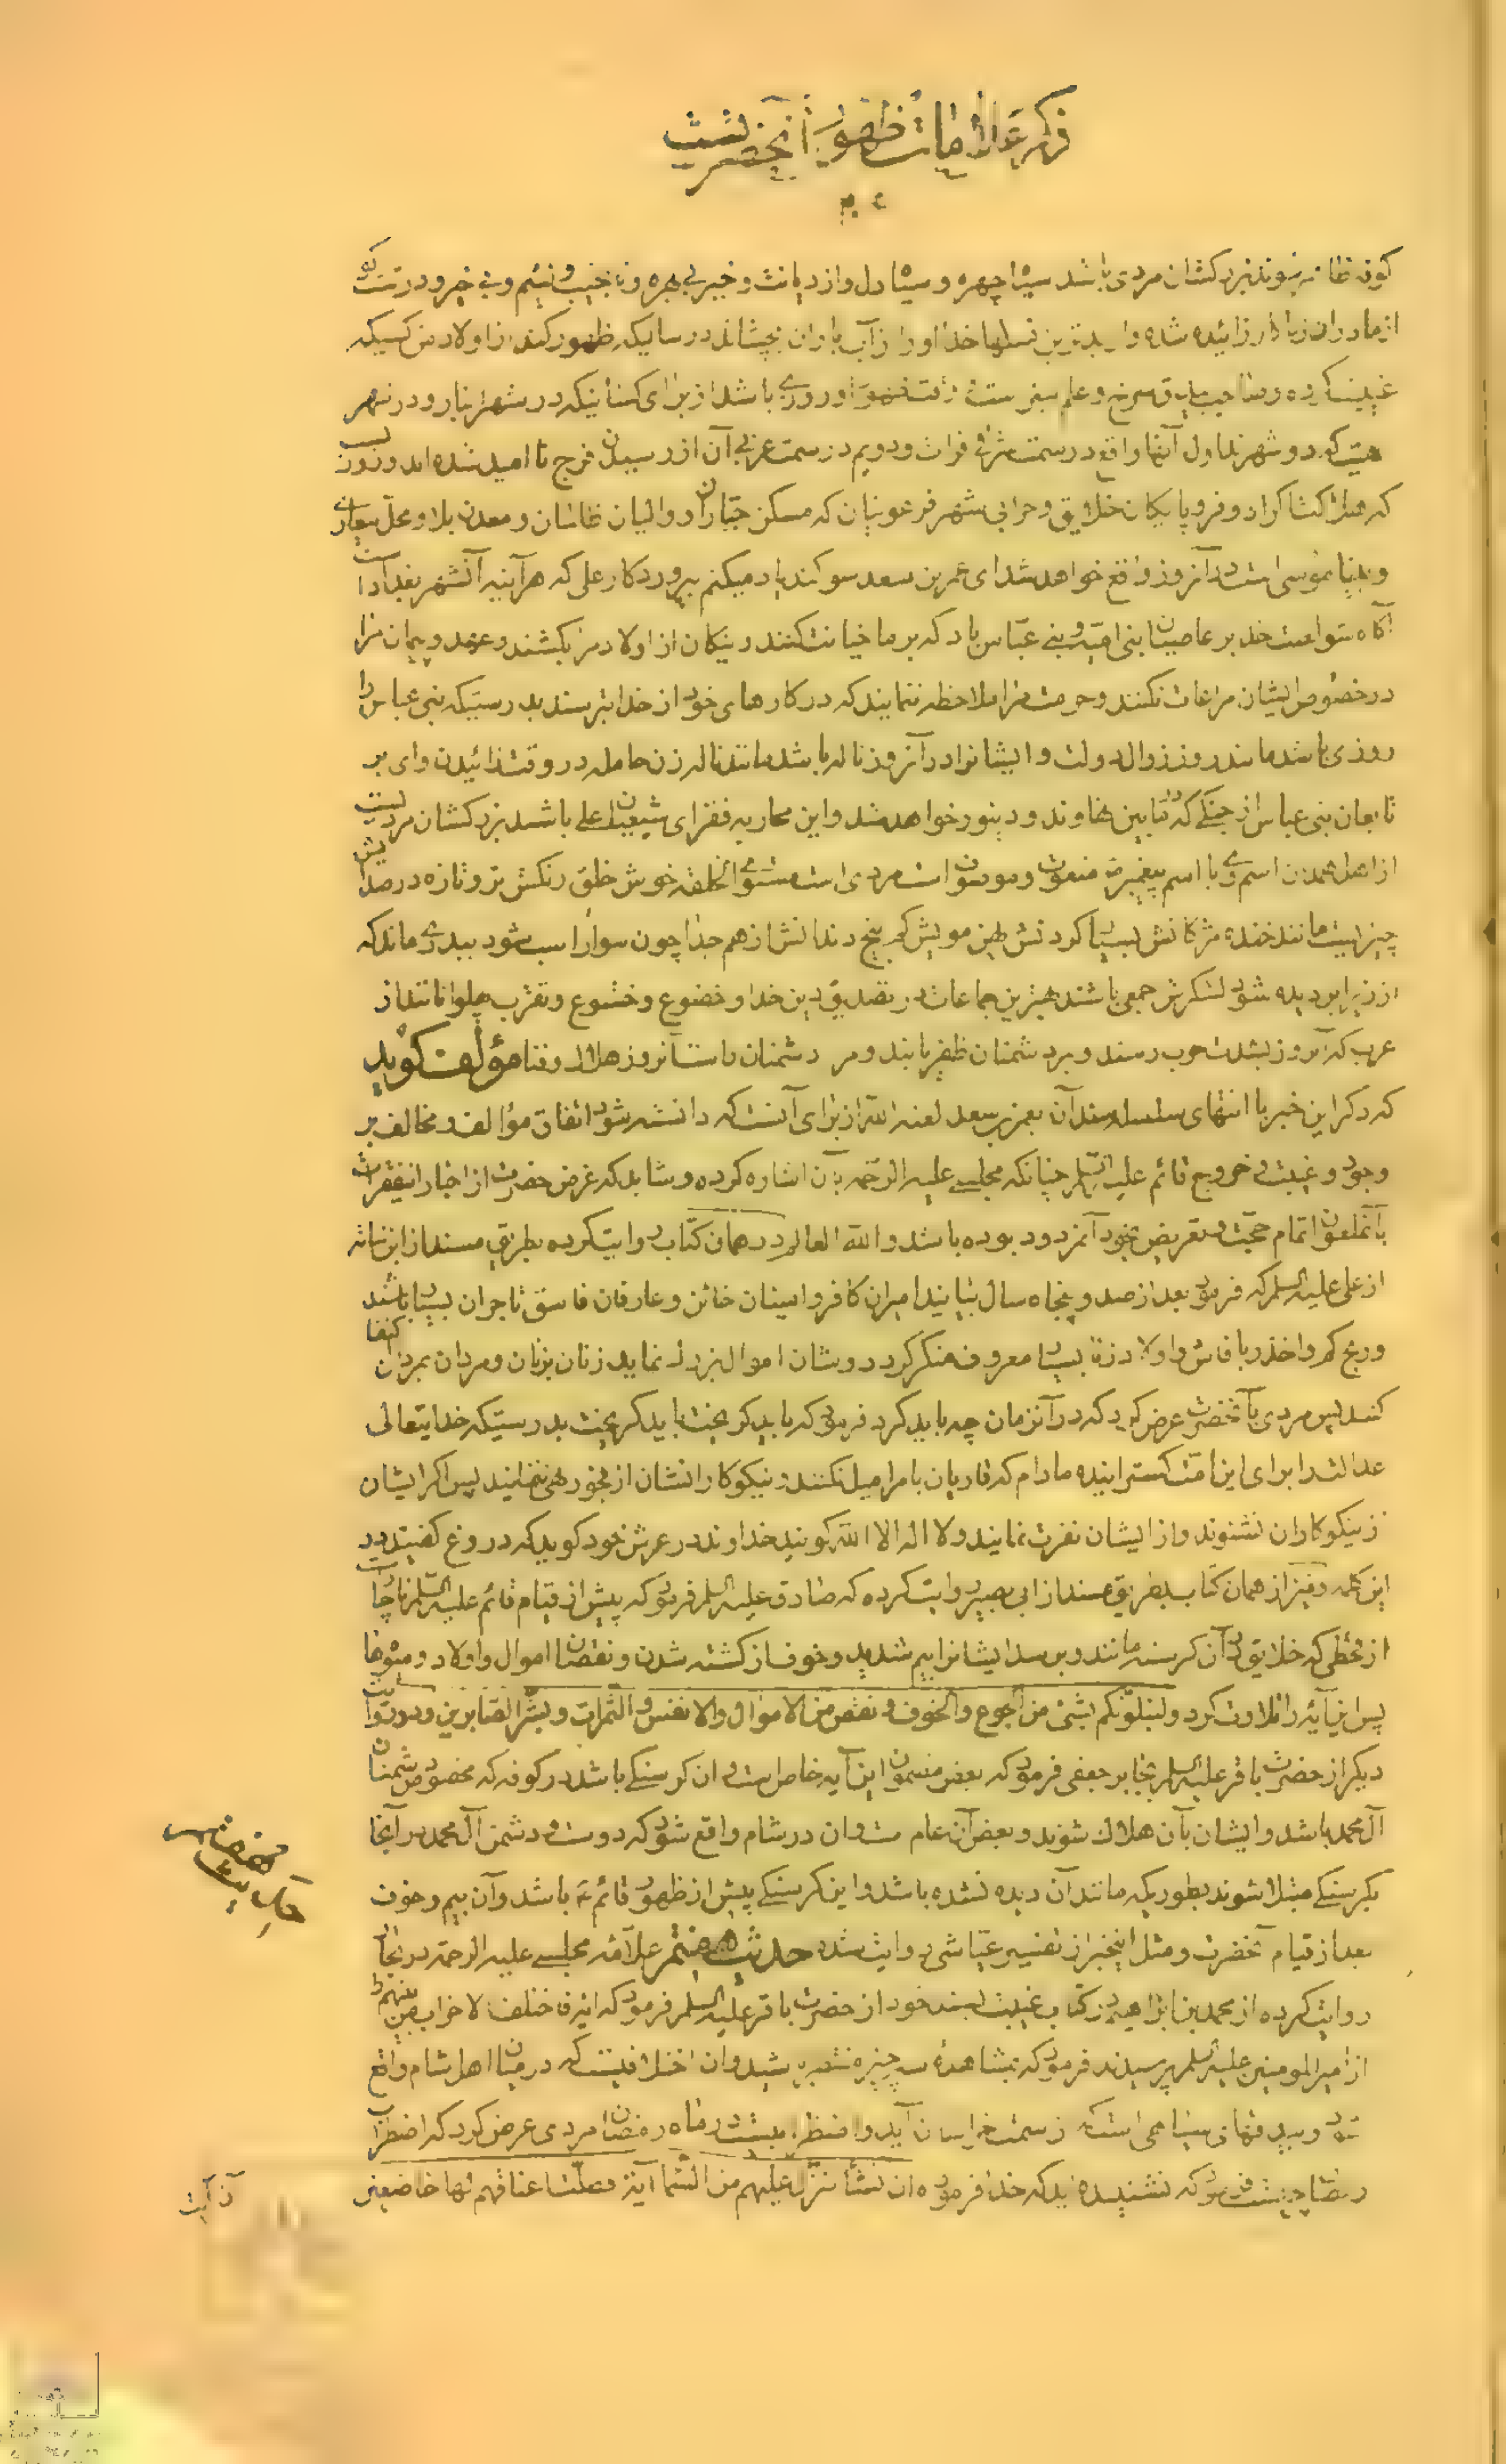 ذکر علامات ظهور آنحضرتست
باشد سیاه چهره و سیاه دل و از دیانت و خیر بی بهره و نانجیب و لئیم و بی خیر و درشت
از مادران زناکار زائیده شده و از بدترین نسلها خدا او را از آب باران بچشاند در سالیکه ظهور کند از اولاد من کسیکه
باشد از برای کسانیکه در شهر انبار و در شهر
هیت که دو شهرند اول آنها واقع در سمت شرقی فرات و دویم در سمت غربی آن از رسیدن فرج ناامید شده اند و روز
خلایق و خرابی شهر فرعونیان که مسکن جباران و والیان ظالمان و معدن بلا و محل
است در آنروز واقع خواهد شد ای عمر بن سعد سوگند یاد میکنم بپروردگار علی که هرآینه آنشهر بغداد
آگاه شو لعنت خدا بر عاصیان بنی امیه و بنی عباس باد که بر ما خیانت کنند و نیکان از اولاد من بکشند و عهد و پیمان مرا
در خصوص ایشان مراعات نکنند و حرمت مرا ملاحظه ننمایند که در کارهای خود از خدا بترسند بدرستیکه بنی عباس را
روزی باشد مانند روز زوال دولت و ایشانرا در آنروز ناله باشد مانند ناله زن حامله در وقت زائیدن وای بر
تابعان بنی عباس از جنگی که مابین نهاوند و دینور خواهد شد و این محاربه فقرای شیعیان علی باشد بزرگشان مردیست
از اهل همدان اسم وی با اسم پیغمبر منعوت و موصوف است مردی است مستوی الخلقه خوش خلق رنگش تر و تازه در صدایش
چیزیست مانند خنده مژگانش بسیار گردنش پهن مویش کم بیخ دندانش از هم جدا چون سوار اسب شود ببدری ماند که
از زیر ابر دیده شود لشکرش جمعی باشند بهترین جماعات در تصدیق دین خدا و خضوع و خشوع و تقرب پهلوانانند از
عرب که آنروز بشدت حرب رسند و بر دشمنان ظفر یابند و مر دشمنان راست آنروز هلاک و فنا مؤلف گوید
که ذکر این خبر با انتهای سلسله سند آن بعمر بن سعد لعنه الله از برای آنست که دانسته شود اتفاق مؤالف و مخالف بر
وجود و غیبت و خروج قائم علیه السلام چنانکه مجلسی علیه الرحمه بآن اشاره کرده و شاید که غرض حضرت از اخبار اینفقرات
بآنملعون اتمام حجت و تعریض بخود آنمردود بوده باشد والله العالم و در همان کتاب روایت کرده بطریق مسند از ابن نباته
از علی علیه السلام که فرمود بعد از صد و پنجاه سال بیایند امیران کافر و امینان خائن و عارفان فاسق تاجران بسیار باشند
و ربح کم و اخذ ربا فاش و اولاد زنا بسیار معروف منکر گردد زنان بزنان و مردان بمردان اکتفا
کنند پس مردی بآنحضرت عرض کرد که در آنزمان چه باید کرد فرمود که باید گریخت باید گریخت بدرستیکه خدایتعالی
عدالت را برای این امت گستراینده مادام که قاریان بامرا میل نکنند و نیکوکارانشان از فجور نهی نمایند پس اگر ایشان
از نیکوکاران نشنوند و از ایشان نفرت نمایند و لا اله الا الله گویند خداوند در عرش خود گوید که دروغ گفتید در
این کلمه و نیز از همان کتاب بطریق مسند از ابی بصیر روایت کرده که صادق علیه السلام فرمود که پیش از قیام قائم علیه السلام ناچار است
از قحطی که خلایق در آن گرسنه مانند و برسد ایشانرا بیم شدید و خوف از کشته شدن و نقصان اموال و اولاد و میوها
پس این آیه را تلاوت کرد ولنبلونکم بشئ من الجوع والخوف و نقص من الاموال والانفس والثمرات و بشر الصابرین و در روایت
دیگر از حضرت باقر علیه السلام بجابر جعفی فرمود که بعض مضمون این آیه خاص است و آن گرسنگی باشد در کوفه که مخصوص دشمنان
آل محمد باشد و ایشان بآن هلاک شوند و بعض آن عام است و آن در شام واقع شود که دوست و دشمن آل محمد در آنجا
بگرسنگی مبتلا شوند بطوریکه مانند آن دیده نشده باشد و این گرسنگی پیش از ظهور قائم ع باشد و آن بیم و خوف
بعد از قیام آنحضرت و مثل اینخبر از تفسیر عیاشی روایت شده حدیث هفتم علامه مجلسی علیه الرحمه در بحار
روایت کرده از محمد بن ابراهیم در کتاب غیبت بسند خود از حضرت باقر علیه السلام فرمود که آیه فاختلف الاحزاب من بینهم را
از امیرالمومنین علیه السلام پرسیدند فرمود که بمشاهده سه چیز منتظر باشید و آن اختلافیست که در میان اهل شام واقع
شود و بیدقهای سیاهی است که از سمت خراسان آید و اضطرابیست در ماه رمضان مردی عرض کرد که اضطراب
رمضان چیست فرمود که نشنیده اید که خدا فرموده ان نشأ ننزل علیهم من السمآ آیة فظلت اعناقهم لها خاضعین
آن آیت